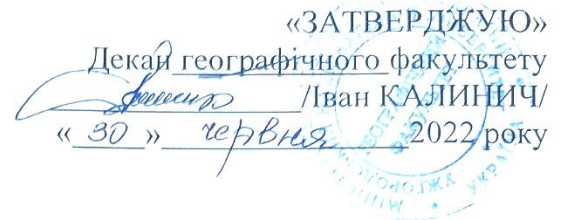 «ЗАТВЕРДЖУЮ»
Декан географічного факультету
/Іван КАЛИНИЧ/
«30» червня 2022 року